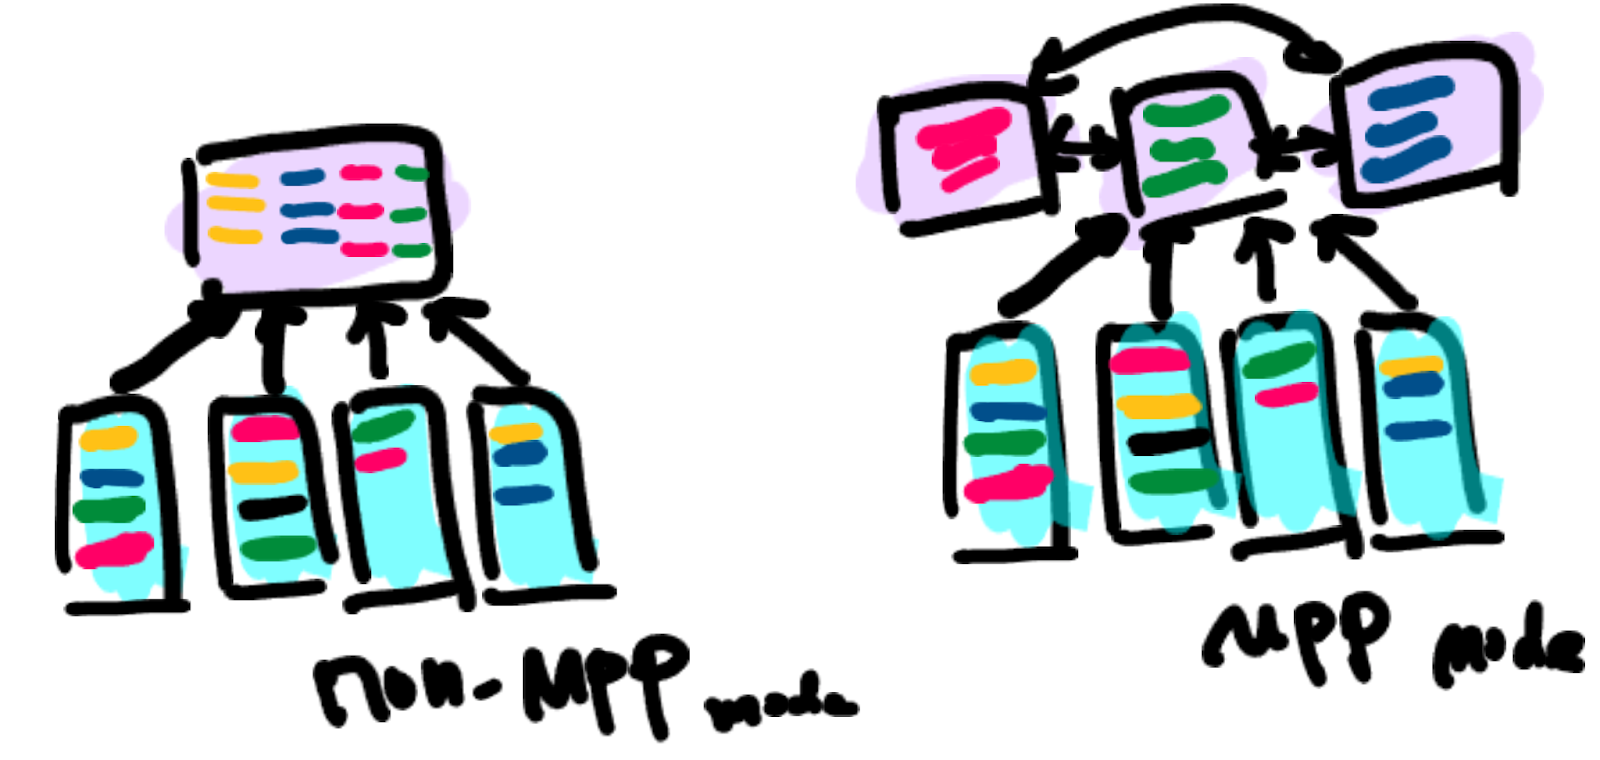 non-MPP mode
MPP mode